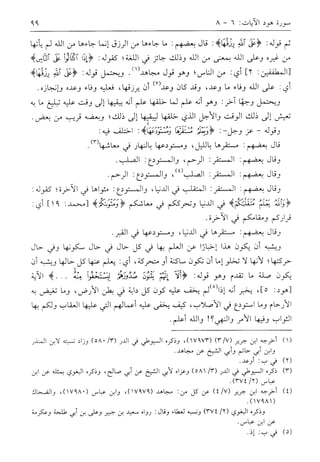 سورة هود الآيات: ٦ - ٨ ٩٩
ثم قوله: ﴿عَلَى اللَّهِ رِزْقُهَا﴾: قال بعضهم: ما جاءها من الرزق إنما جاءها من الله لم يأتها
من غيره وعلى الله بمعنى من الله وذلك جائز في اللغة؛ كقوله: ﴿إِذَا اكْتَالُوا عَلَى النَّاسِ﴾
[المطففين: ٢] أي: من الناس؛ وهو قول مجاهد(١). ويحتمل قوله: ﴿عَلَى اللَّهِ رِزْقُهَا﴾
أي: على الله وفاء ما وعد، وقد كان وعد(٢) أن يرزقها، فعليه وفاء وعده وإنجازه.
ويحتمل وجهًا آخر: وهو أنه علم لما خلقها علم أنه يبقيها إلى وقت عليه تبليغ ما به
تعيش إلى ذلك الوقت والأجل الذي خلقها ليبقيها إلى ذلك؛ وبعضه قريب من بعض.
وقوله - عز وجل-: ﴿وَيَعْلَمُ مُسْتَقَرَّهَا وَمُسْتَوْدَعَهَا﴾: اختلف فيه:
قال بعضهم: مستقرها بالليل، ومستودعها بالنهار في معاشها(٣).
وقال بعضهم: المستقر: الرحم، والمستودع: الصلب.
وقال بعضهم: المستقر: الصلب(٤)، والمستودع: الرحم.
وقال بعضهم: المستقر: المتقلب في الدنيا، والمستودع: مثواها في الآخرة؛ كقوله:
﴿وَاللَّهُ يَعْلَمُ مُتَقَلَّبَكُمْ﴾ في الدنيا وتحرككم في معاشكم ﴿وَمَثْوَاكُمْ﴾ [محمد: ١٩] أي:
قراركم ومقامكم في الآخرة.
وقال بعضهم: مستقرها في الدنيا، ومستودعها في القبر.
ويشبه أن يكون هذا إخبارًا عن العلم بها في كل حال في حال سكونها وفي حال
حركتها؛ لأنها لا تخلو إما أن تكون ساكنة أو متحركة، أي: يعلم عنها كل حالها ويشبه أن
يكون صلة ما تقدم وهو قوله: ﴿أَلَا إِنَّهُمْ يَثْنُونَ صُدُورَهُمْ لِيَسْتَخْفُوا مِنْهُ ...﴾ الآية
[هود: ٥]، يخبر أنه إذا(٥) لم يخف عليه كون كل دابة في بطن الأرض، وما تغيض به
الأرحام وما استودع في الأصلاب، كيف يخفى عليه أعمالهم التي عليها العقاب ولكم بها
الثواب وفيها الأمر والنهي؟! والله أعلم.
(١) أخرجه ابن جرير (٣/٧) (١٧٩٧٣)، وذكره السيوطي في الدر (٣/ ٥٨٠) وزاد نسبته لابن المنذر
وابن أبي حاتم وأبي الشيخ عن مجاهد.
(٢) في ب: أوعد.
(٣) ذكره السيوطي في الدر (٣/ ٥٨١) وعزاه لأبي الشيخ عن أبي صالح، وذكره البغوي بمثله عن ابن
عباس (٢/ ٣٧٤).
(٤) أخرجه ابن جرير (٤/٧) عن كل من: مجاهد (١٧٩٧٩)، وابن عباس (١٧٩٨٠)، والضحاك
(١٧٩٨١).
وذكره البغوي (٢/ ٣٧٤) ونسبه لعطاء وقال: رواه سعيد بن جبير وعلي بن أبي طلحة وعكرمة
عن ابن عباس.
(٥) في ب: إذ.